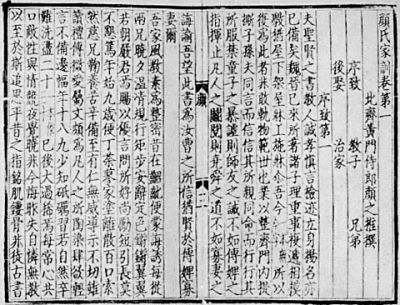 顏氏家訓卷第一
北齊黃門侍郎顏之推撰
序致 教子 兄弟
後娶 治家
序致第一
夫聖賢之書教人誠孝慎言檢迹立身揚名亦
已備矣魏晉已來所著諸子理重事複遞相模
斆猶屋下架屋牀上施牀爾吾今所以
復為此者非敢軌物範世也業以整齊門內提
撕子孫夫同言而信信其所親同命而行行其
所服禁童子之暴謔則師友之誡不如傅婢之
指揮止凡人之鬭鬩則堯舜之道不如寡妻之
顏一
誨諭吾望此書為汝曹之所信猶賢於傅婢寡
妻爾
吾家風教素為整密昔在齠齔便蒙誨誘每從
兩兄曉夕溫凊規行矩步安辭定色鏘鏘翼翼
若朝嚴君焉賜以優言問所好尚勵短引長莫
不懇篤年始九歲便丁荼蓼家塗離散百口索
然慈兄鞠養苦辛備至有仁無威導示不切雖
讀禮傳微愛屬文頗為凡人之所陶染肆欲輕
言不備邊幅年十八九少知砥礪習若自然卒
難洗盪二十已後大過稀焉每常心共
口敵性與情競夜覺曉非今悔昨失自憐無教
以至於斯追思平昔之指銘肌鏤骨非徒古書